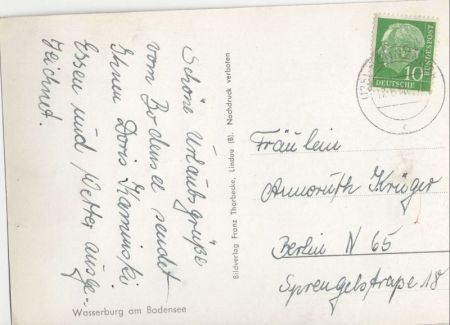 Schöne Urlaubsgrüße
vom Bodensee sendet
Ihnen Doris Kaminski.
Essen und Wetter ausge-
zeichnet.
Wasserburg am Bodensee
Bildverlag Franz Thorbecke, Lindau (B). Nachdruck verboten
10
DEUTSCHE
BUNDESPOST
c
Fräulein
Annoruth Krüger
Berlin N 65
Sprengelstraße 18